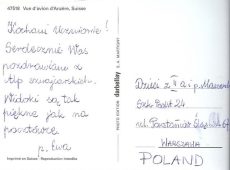 47518 Vue d'avion d'Anzère, Suisse
Kochani Uczniowie!
Serdecznie Was
pozdrawiam z
Alp szwajcarskich.
Widoki są tak
piękne jak na
pocztówce
p. Ewa
Imprimé en Suisse - Reproduction interdite
PHOTO EDITION
darbellay
Dzieci z II a i p.
Szk. Podst 24
ul.
WARSZAWA
POLAND